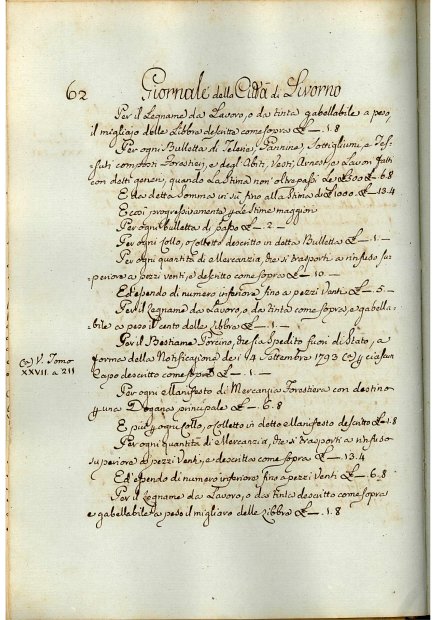 62
Giornale della Città di Livorno
Per il Legname da Lavoro, o da tinta gabellabile a peso
il migliajo delle Libbre descritto come sopra £ —. 1. 8
Per ogni Bulletta di Telerie, Pannine,
suti composti Forestieri, e degli Abiti, Vesti, Arnesi, o Lavori fatti
con detti generi, quando la stima non oltrepassi Le £ 300 £ —. 6. 8
E da detta Somma in sù, fino alla Stima di £ 1000. £ —. 13. 4
E così progressivamente p le Stime maggiori
Per ogni bulletta di passo £ —. 2 —
Per ogni Collo, o Colletto descritto in detta Bulletta £ —. 1. —
Per ogni quantità di Mercanzia, che si trasporti a rinfuso su-
periore a pezzi venti, e descritto come sopra £ —. 10. —
Ed essendo di numero inferiore fino a pezzi Venti £ —. 5. —
Per il Legname da Lavoro, o da tinta come sopra, e gabella-
bile a peso il Cento delle Libbre £ —. 1. —
Per il Bestiame Porcino, che sia Spedito fuori di Stato, a
forma della Notificazione de i 14 Settembre 1793 (a) p ciascun
Capo descritto come sopra £ —. 1. —
(a) V. Tomo
XXVII. a 211
Per ogni Manifesto di Mercanzia Forestiera con destino
p una Dogana principale £ —. 6. 8
E più p ogni Collo, o Colletto in detto Manifesto descritto £ —. 1. 8
Per ogni quantità di Mercanzia, che si trasporti a rinfuso
superiore a pezzi Venti, e descritta come sopra £ —. 13. 4
Ed essendo di numero inferiore fino a pezzi Venti £ —. 6. 8
Per il Legname da Lavoro, o da tinta descritto come sopra
e gabellabile a peso il migliaro delle Libbre £ —. 1. 8